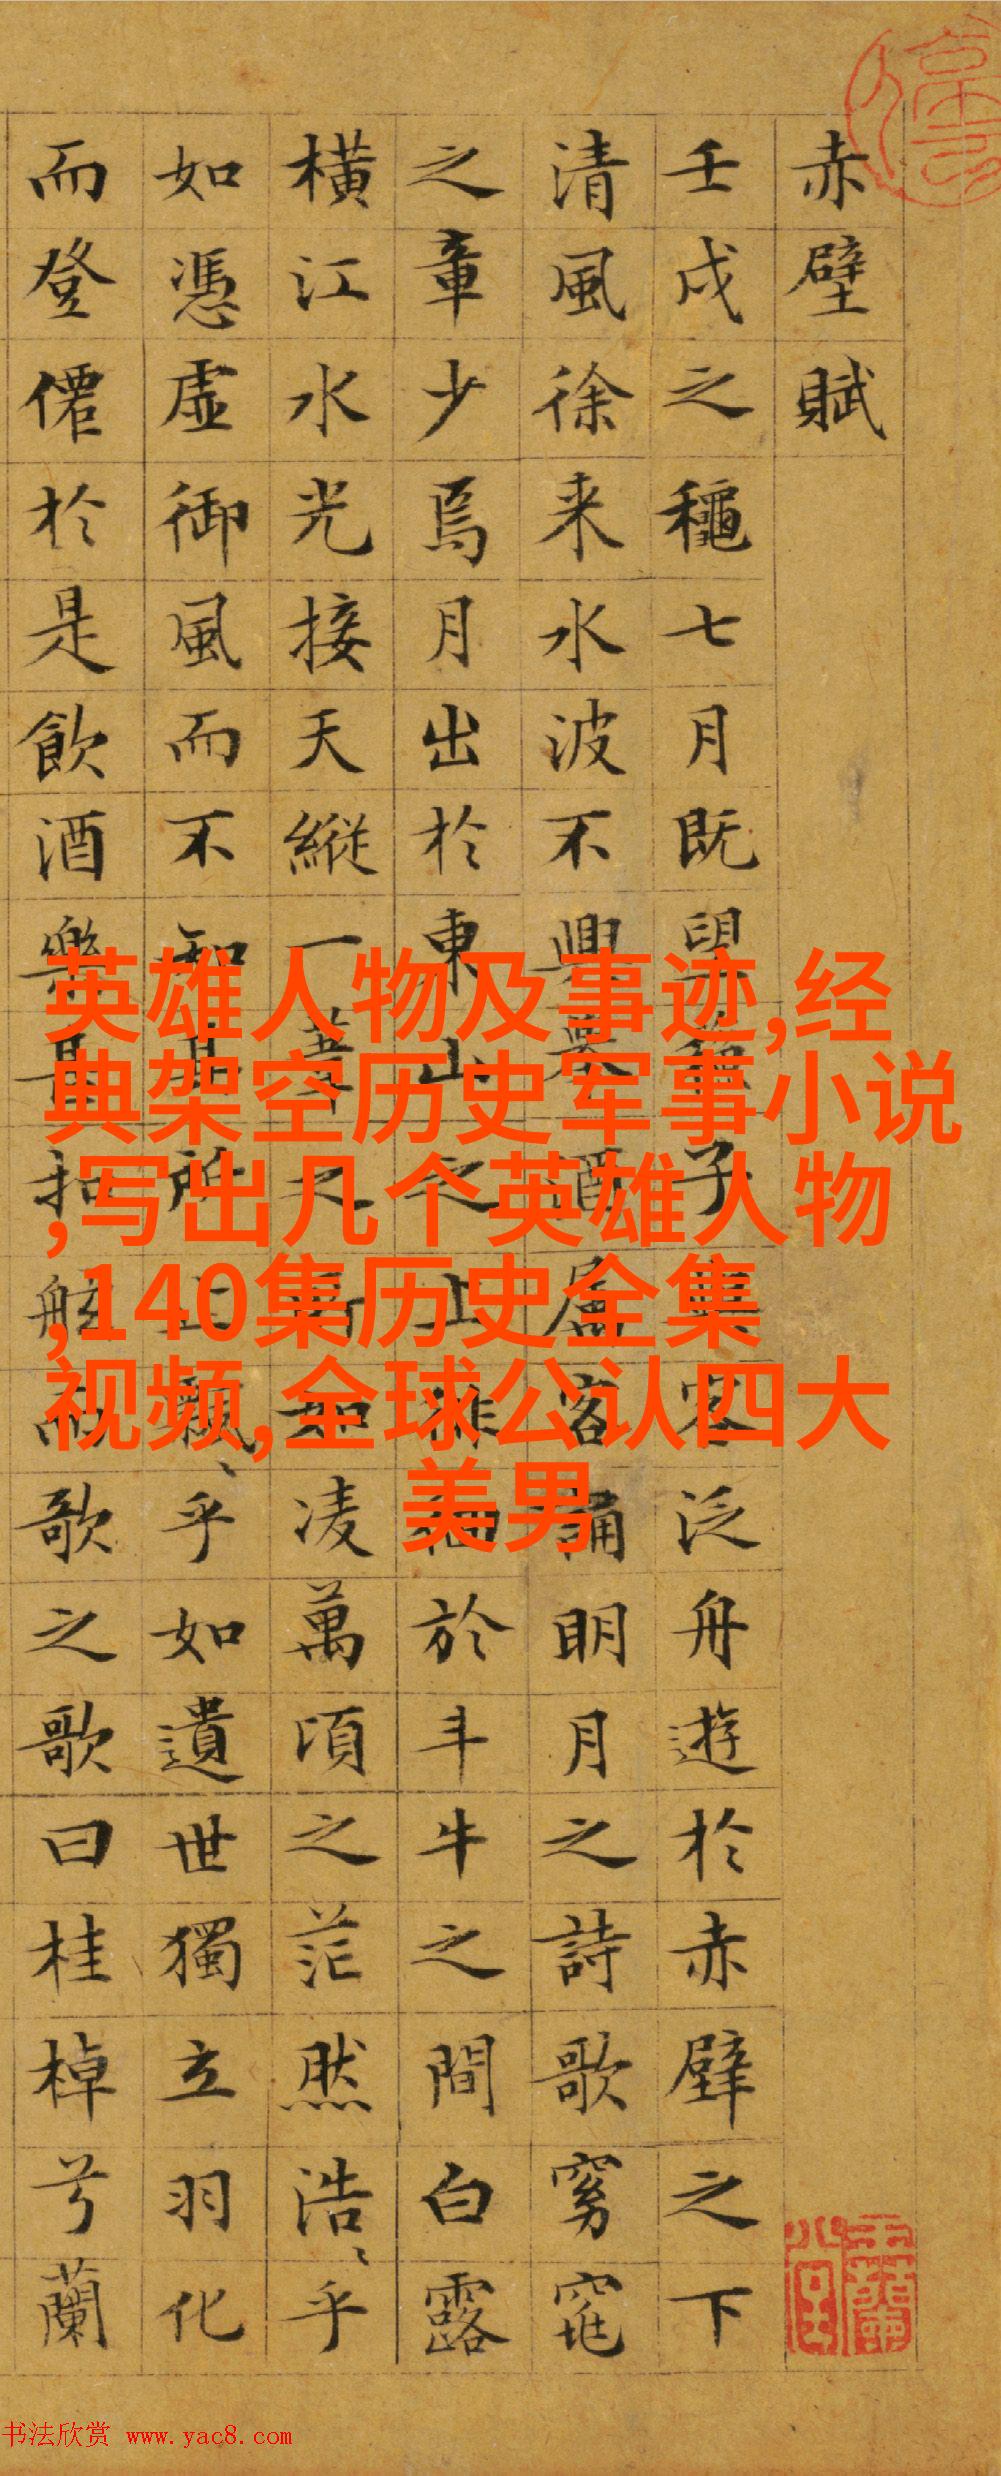 赤壁賦
壬戌之穐七月既望蘇子與客泛舟遊於赤壁之下
清風徐来水波不興舉酒屬客誦明月之詩歌窈窕
之章少焉月出於東山之上徘徊於斗牛之間白露
橫江水光接天縱一葦之所如凌萬頃之茫然浩〻乎
如憑虛御風而不知其所止飄〻乎如遺世獨立羽化
而登僊於是飲酒樂甚扣舷而歌之歌曰桂棹兮蘭
英雄人物及事迹,经
典架空历史军事小说
,写出几个英雄人物
,140集历史全集
视频,全球公认四大
美男
书法欣赏 www.yac8.com